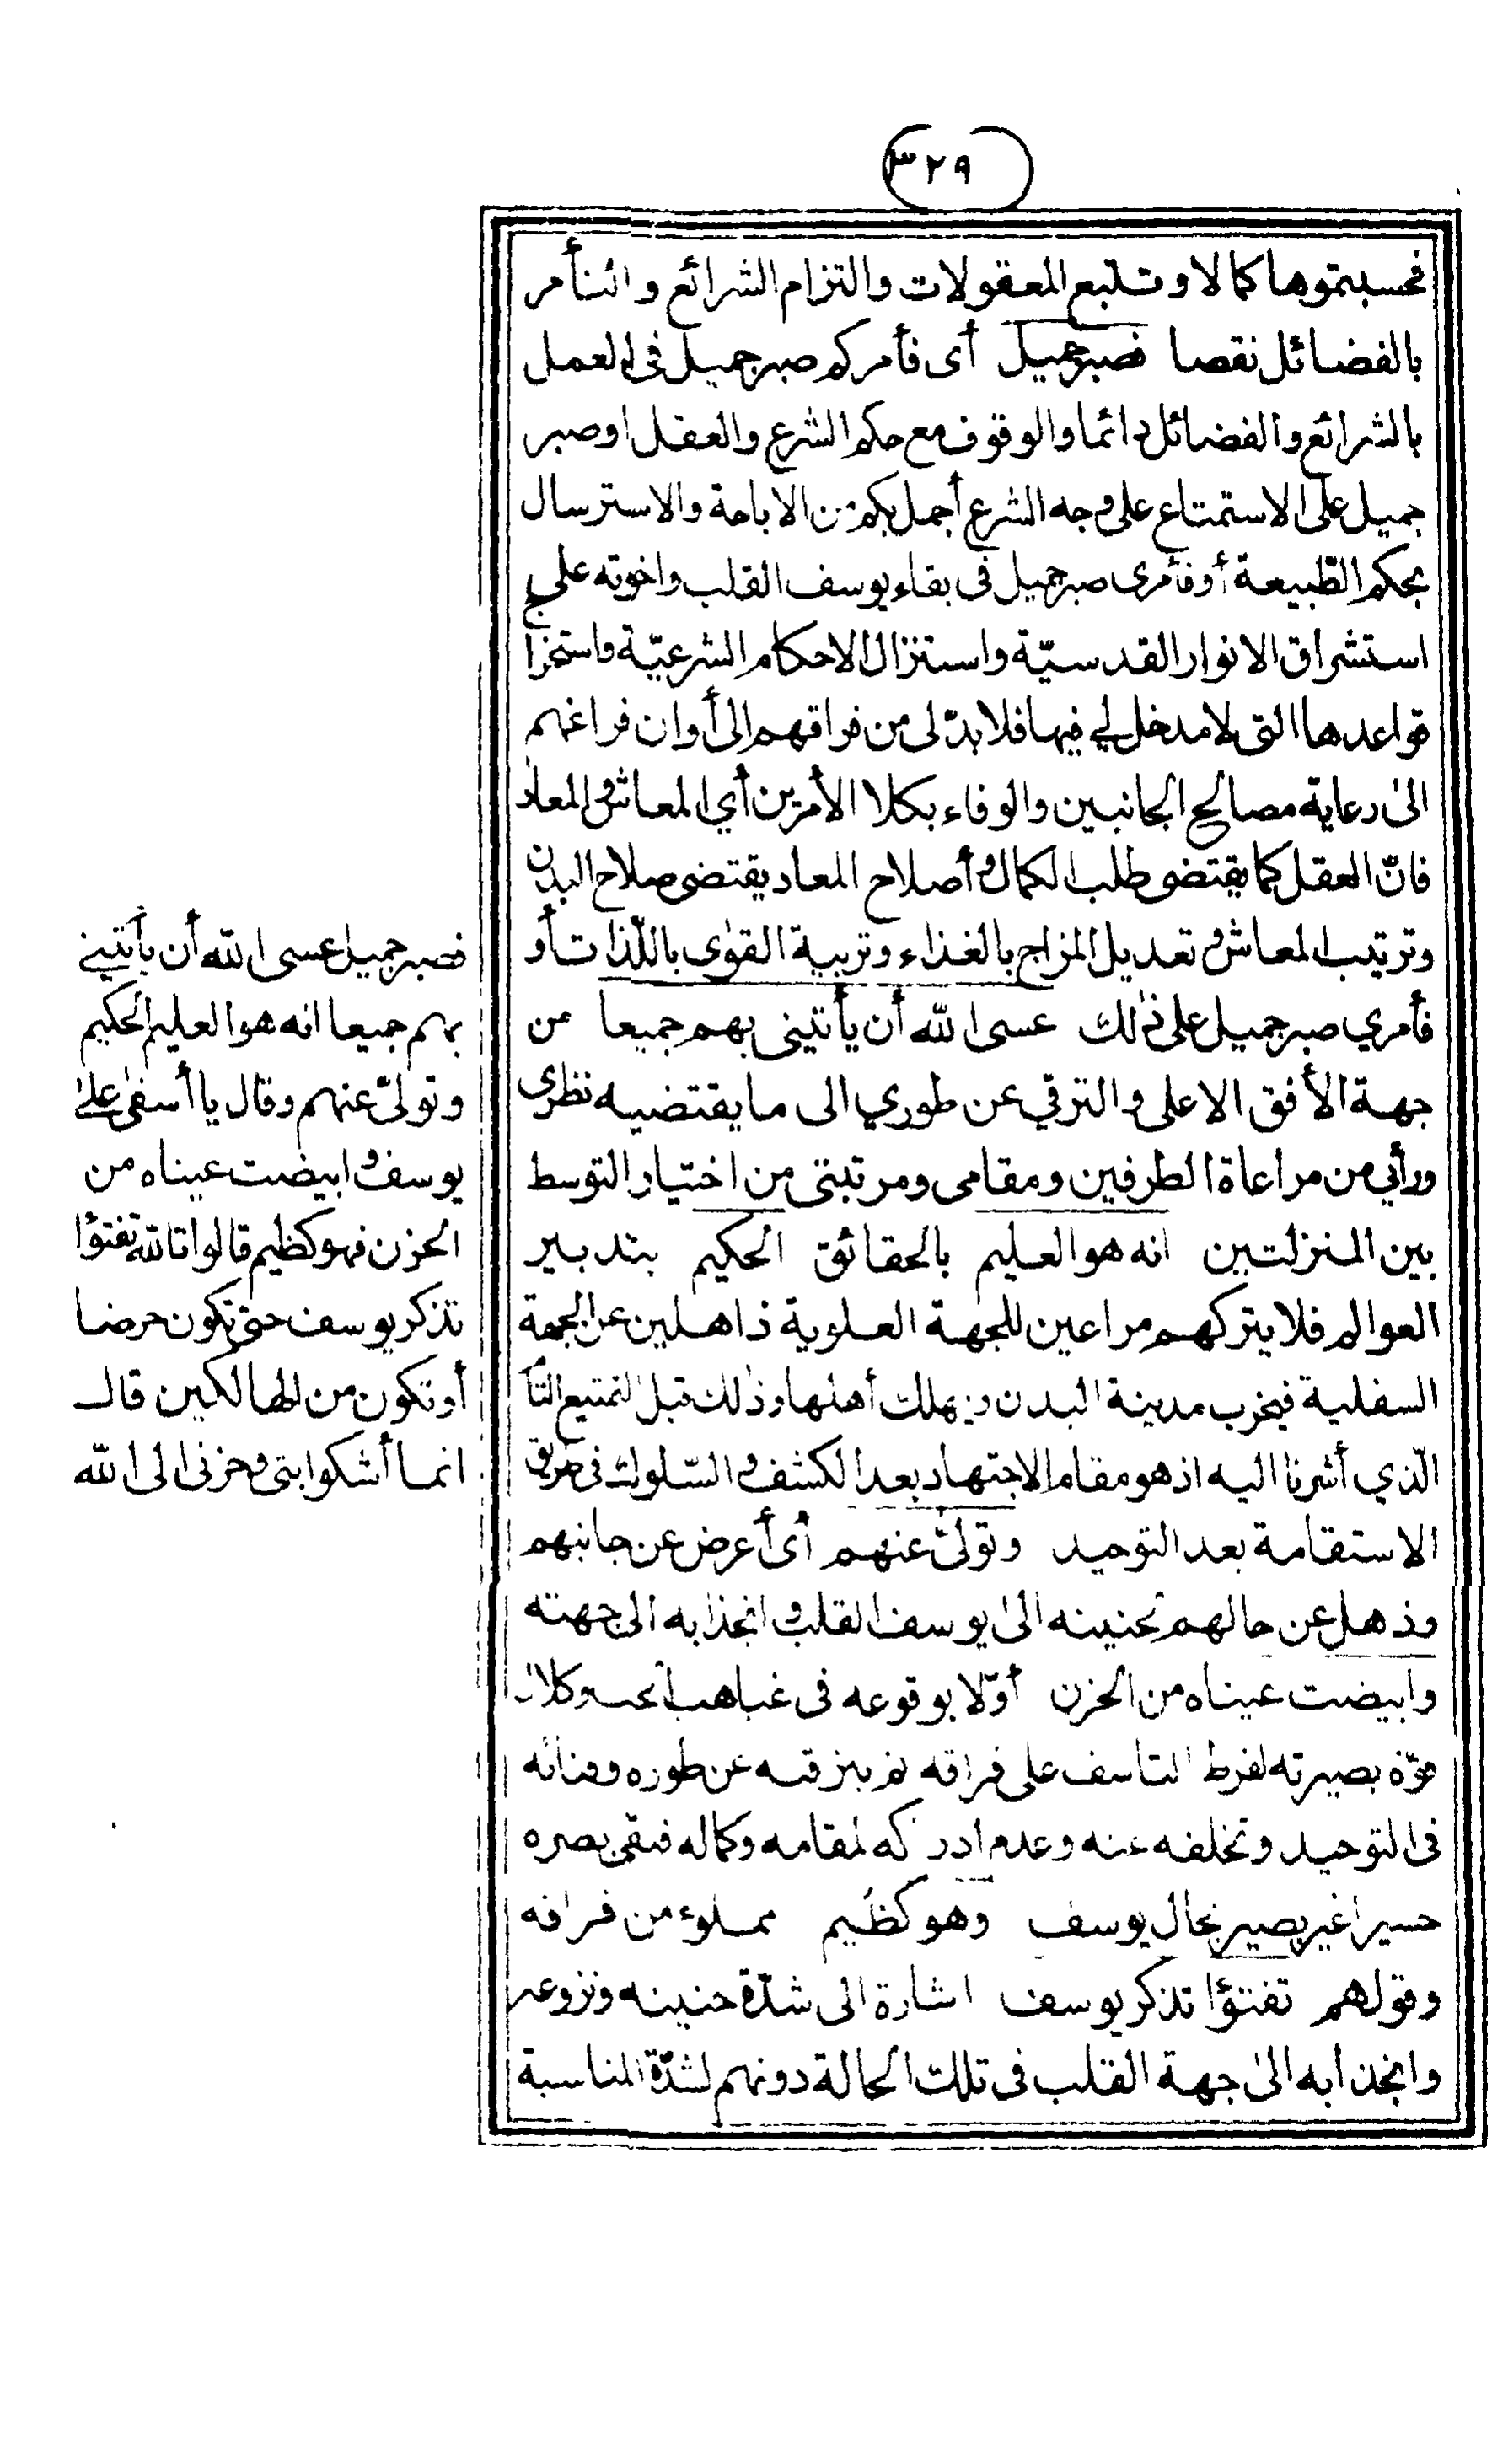 ٣٢٩
فحسبتموها كمالا وتتبع المعقولات والتزام الشرائع والتأمر
بالفضائل نقصا فصبر جميل أى فأمركم صبر جميل فى العمل
بالشرائع والفضائل دائما والوقوف مع حكم الشرع والعقل او صبر
جميل على الاستمتاع على وجه الشرع أجمل بكم من الاباحة والاسترسال
بحكم الطّبيعة أو فأمرى صبر جميل فى بقاء يوسف القلب واخوته على
استشراق الانوار القدسيّة واستنزال الاحكام الشرعيّة واستخراج
قواعدها التى لا مدخل لي فيها فلا بدّ لى من فراقهم الى أوان فراغهم
الىٰ رعاية مصالح الجانبين والوفاء بكلا الأمرين أي المعاش والمعاد
فانّ العقل كما يقتضى طلب الكمال وأصلاح المعاد يقتضى صلاح البدن
وترتيب المعاش وتعديل المزاج بالغذاء وتربية القوٰى باللّذات أو
فأمري صبر جميل على ذٰلك عسى الله أن يأتينى بهم جميعا من
جهة الأفق الاعلى والترقي عن طوري الى ما يقتضيه نظرى
ورأيي من مراعاة الطرفين ومقامى ومرتبتى من اختيار التوسط
بين المنزلتين انه هو العليم بالحقائق الحكيم بتدبير
العوالم فلا يتركهم مراعين للجهة العلوية ذاهلين عن الجهة
السفلية فيخرب مدينة البدن ويهلك أهلها وذٰلك قبل التمتيع التأم
الّذي أشرنا اليه اذ هو مقام الاجتهاد بعد الكشف والسّلوك فى طريق
الاستقامة بعد التوحيد وتولىّ عنهم أى أعرض عن جانبهم
وذهل عن حالهم لحنينه الىٰ يوسف القلب وانجذابه الى جهته
وابيضت عيناه من الحزن أوّلا بوقوعه فى غياهب الجب وكلال
قوّة بصيرته لفرط التاسف على فراقه ثم بترقيه عن طوره وفنائه
فى التوحيد وتخلفه عنه وعدم ادراكه لمقامه وكماله فبقى بصره
حسيرا غير بصير بحال يوسف وهو كظيم مملوء من فراقه
وقولهم تفتؤا تذكر يوسف اشارة الى شدّة حنينه ونزوعه
وانجذابه الىٰ جهة القلب فى تلك الحالة دونهم لشدّة المناسبة
فصبر جميل عسى الله أن يأتينى
بهم جميعا انه هو العليم الحكيم
وتولىّ عنهم وقال يا أسفىٰ علىٰ
يوسف وابيضت عيناه من
الحزن فهو كظيم قالوا تالله تفتؤا
تذكر يوسف حتى تكون حرضا
أو تكون من الهالكين قال
انما أشكوا بثى وحزنى الى الله